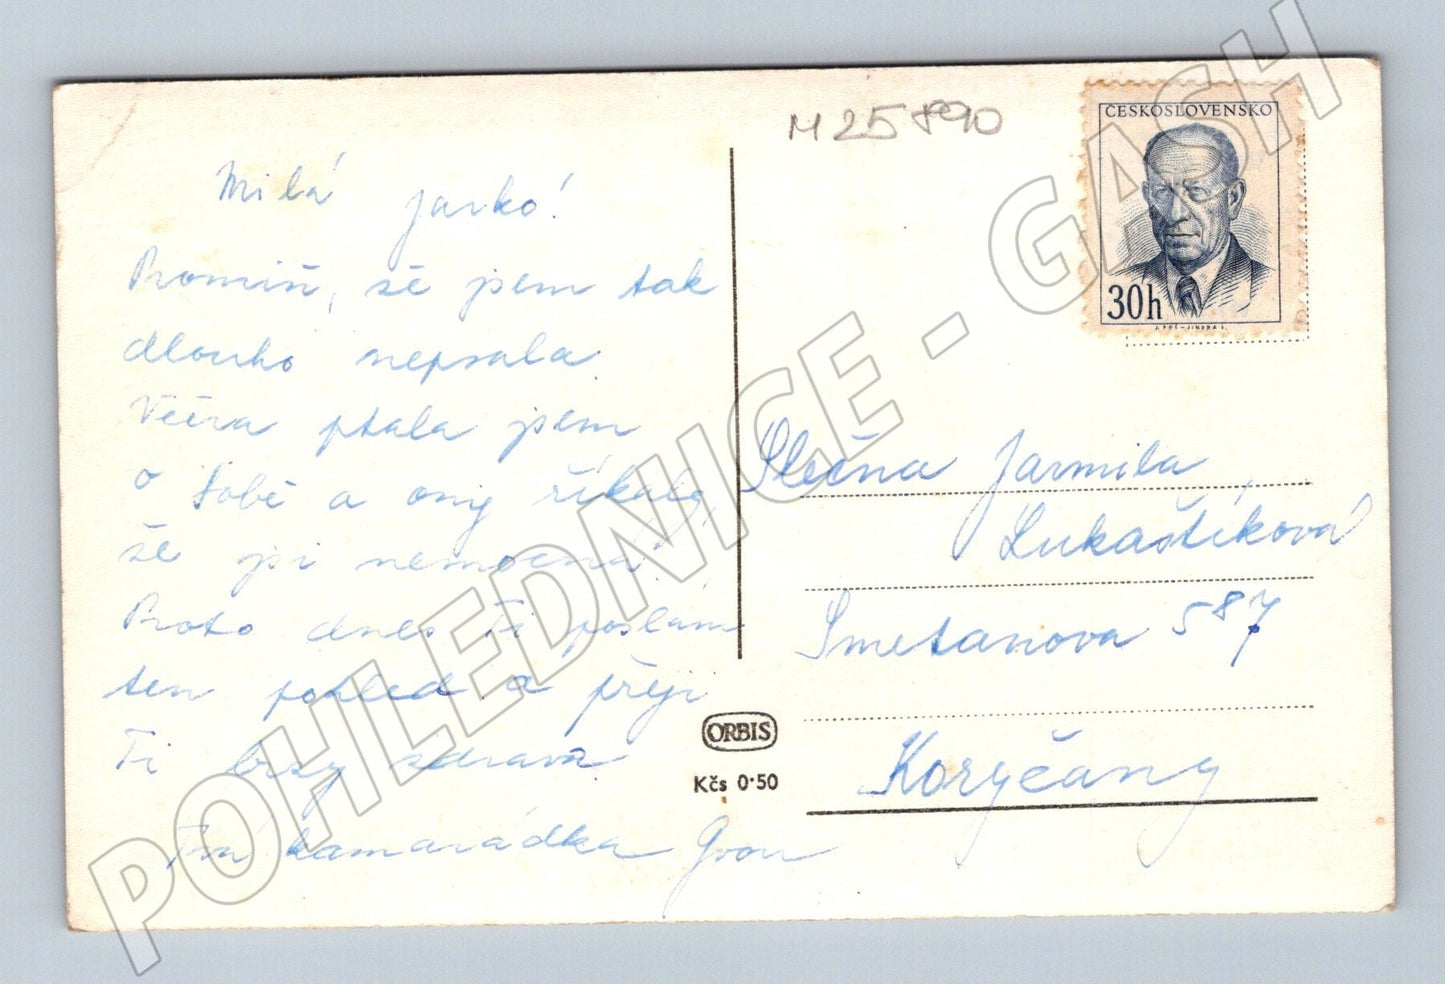 M 25890
ČESKOSLOVENSKO
30h
Milá Jarko!
Promiň, že jsem tak
dlouho nepsala.
Včera ptala jsem
o Tobě a ony říkaly,
že jsi nemocná.
Proto dnes Ti posílám
ten pohled a přeji
Ti brzy zdraví
Tvá kamarádka
Slečna Jarmila
Lukaštíková
Smetanova 587
Koryčany
ORBIS
Kčs 0·50
POHLEDNICE - GASH